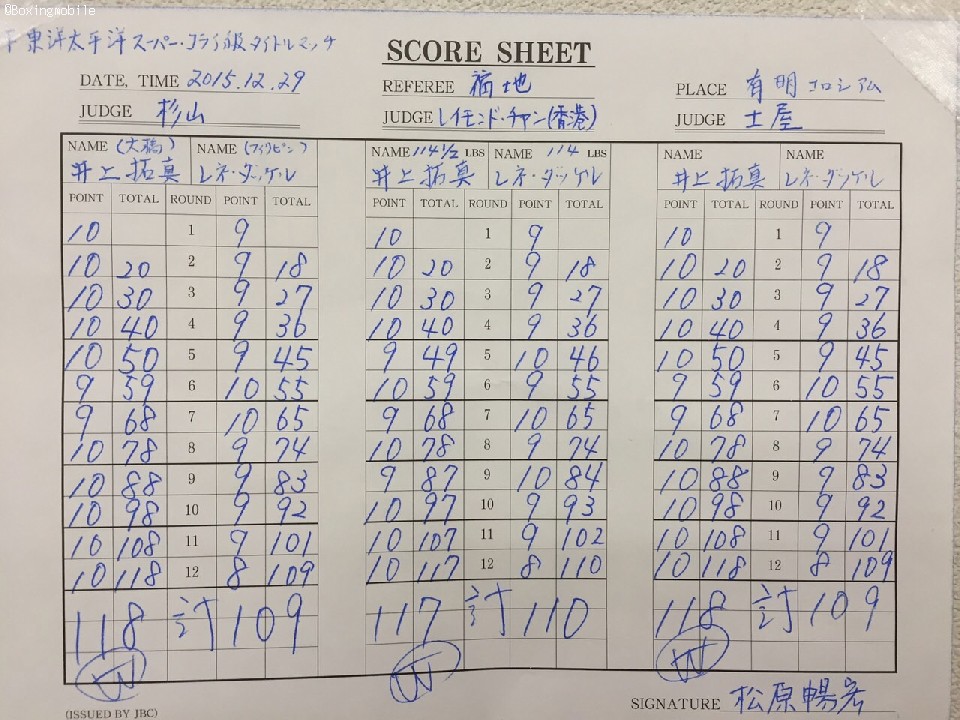 ©Boxingmobile
東洋太平洋スーパー・フライ級タイトルマッチ
SCORE SHEET
DATE, TIME 2015.12.29 REFEREE 福地 PLACE 有明コロシアム
JUDGE 杉山 JUDGE レイモンド・チャン(香港) JUDGE 土屋
NAME (大橋) NAME (フィリピン) NAME 114 1/2 LBS NAME 114 LBS NAME NAME
井上拓真 レネ・ダッケル 井上拓真 レネ・ダッケル 井上拓真 レネ・ダッケル
POINT TOTAL ROUND POINT TOTAL POINT TOTAL ROUND POINT TOTAL POINT TOTAL ROUND POINT TOTAL
10 1 9 10 1 9 10 1 9
10 20 2 9 18 10 20 2 9 18 10 20 2 9 18
10 30 3 9 27 10 30 3 9 27 10 30 3 9 27
10 40 4 9 36 10 40 4 9 36 10 40 4 9 36
10 50 5 9 45 9 49 5 10 46 10 50 5 9 45
9 59 6 10 55 10 59 6 9 55 9 59 6 10 55
9 68 7 10 65 9 68 7 10 65 9 68 7 10 65
10 78 8 9 74 10 78 8 9 74 10 78 8 9 74
10 88 9 9 83 9 87 9 10 84 10 88 9 9 83
10 98 10 9 92 10 97 10 9 93 10 98 10 9 92
10 108 11 9 101 10 107 11 9 102 10 108 11 9 101
10 118 12 8 109 10 117 12 8 110 10 118 12 8 109
118 計 109 117 計 110 118 計 109
W W W
(ISSUED BY JBC) SIGNATURE 松原暢宏